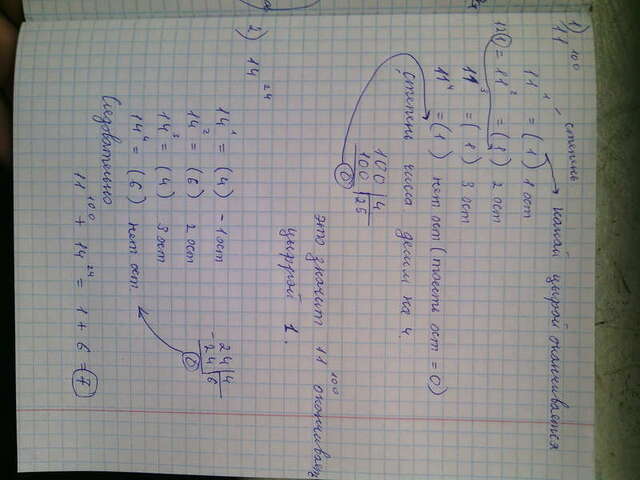 1) 11^100
степень
какой цифрой оканчивается
11^1 = (1) 1 ост
121 = 11^2 = (1) 2 ост
11^3 = (1) 3 ост
11^4 = (1) нет ост (то есть ост = 0)
Степень числа делим на 4.
100 | 4
100 | 25
0
это значит 11^100 оканчивается
цыфрой 1.
2) 14^24
14^1 = (4) - 1 ост
14^2 = (6) 2 ост
14^3 = (4) 3 ост
14^4 = (6) нет ост.
24 | 4
- 24 | 6
0
Следовательно
11^100 + 14^24 = 1 + 6 = 7